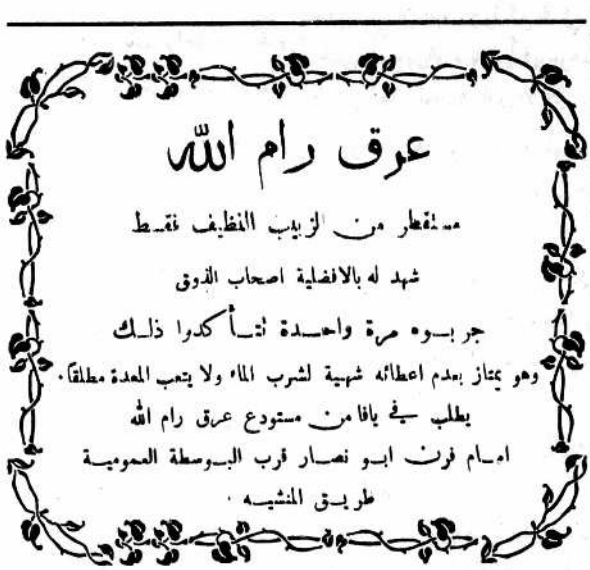 عرق رام الله
مستقطر من الزبيب النظيف فقط
شهد له بالافضلية اصحاب الذوق
جربوه مرة واحدة تتأكدوا ذلك
وهو يمتاز بعدم اعطائه شهية لشرب الماء ولا يتعب المعدة مطلقاً.
يطلب في يافا من مستودع عرق رام الله
امام فرن ابو نصار قرب البوسطة العمومية
طريق المنشيه .